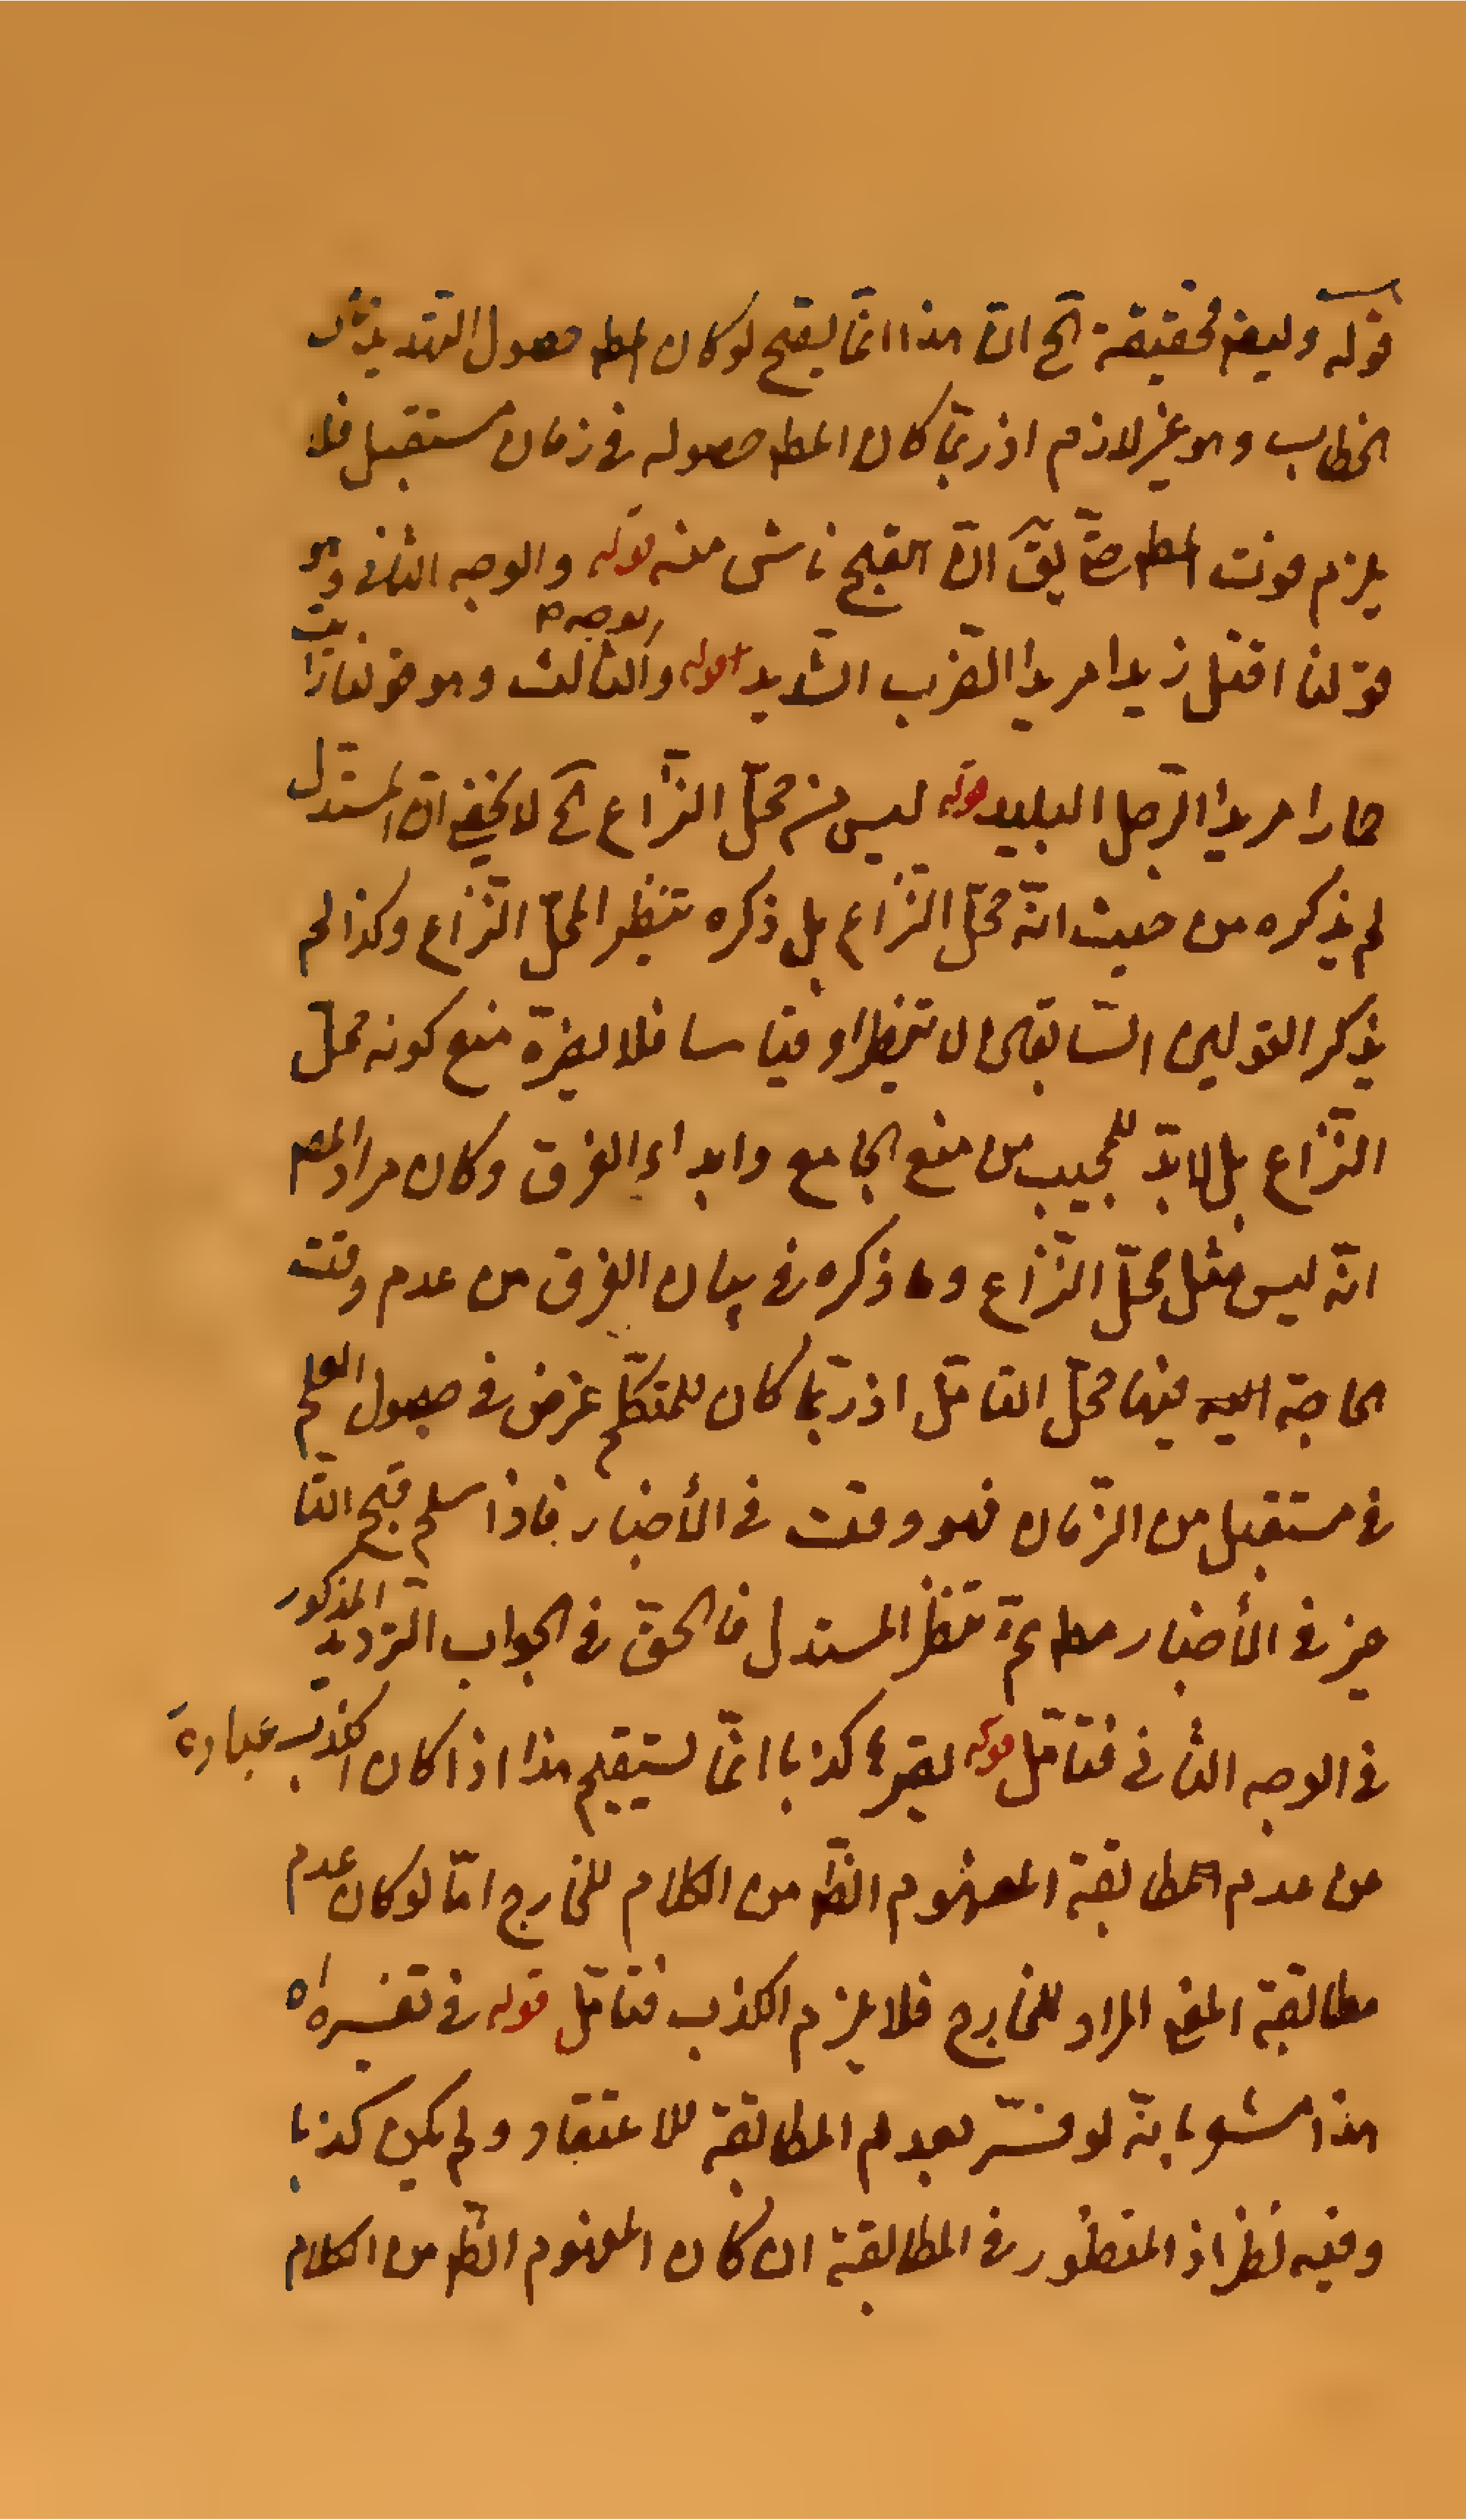 قوله وليعنه حقيقة الخ ان هذا انّما يقبح لو كان المط حصول التهديد ذلك
الخطاب وهو غير لازم اذ ربّما كان المط حصوله فى زمان مستقبل فلا
يلزم فوت المط حتّى يقَ انّ القبح ناش منه قوله والوجه الثانى وهو
قولنا اقتل زيدا مريدا الضّرب الشّديد قوله والوجه الثالث وهو قولنا رايت
حمارا مريدا الرّجل البليد قوله ليس من محلّ النّزاع آلخ لا يخفى انّ المستدل
لم يذكره من حيث انّه محلّ النّزاع بل ذكره تنظيرا لمحلّ النّزاع وكذا لم
يذكر القولين السّابقين الا تنظيرا او قياسا فلا يضرّه منع كونه محلّ
النّزاع بل لا بدّ للمجيب من منع الجامع وابداء الفرق وكان مراد المص
انّه ليس مثل محلّ النّزاع وما ذكره فى بيان الفرق من عدم وقت
الحاجة اليه فيها محلّ التامّل اذ ربّما كان للمتكلّم غرض فى حصول العلم
فى مستقبل من الزّمان فهو وقت فى الأخبار فاذا سلم قبح التا
خير فى الأخبار مط تمّ تنظير المستدل فالحقّ فى الجواب التّرديد المذكور
فى الوجه الثانى فتامّل قوله كذبا انّما يستقيم هذا اذا كان الكذب عبارة
من عدم المطابقة المفهوم الظّ من الكلام للخارج امّا لو كان عدم
مطابقة المعنى المراد للخارج فلا يلزم الكذب فتامّل قوله فى تفسيره اه
هذا مشعر بانّه لو فسّر بعدم المطابقة للاعتقاد ولم يكن كذبا
وفيه نظر اذ المنظور فى المطابقة ان كان المفهوم الظّ من الكلام